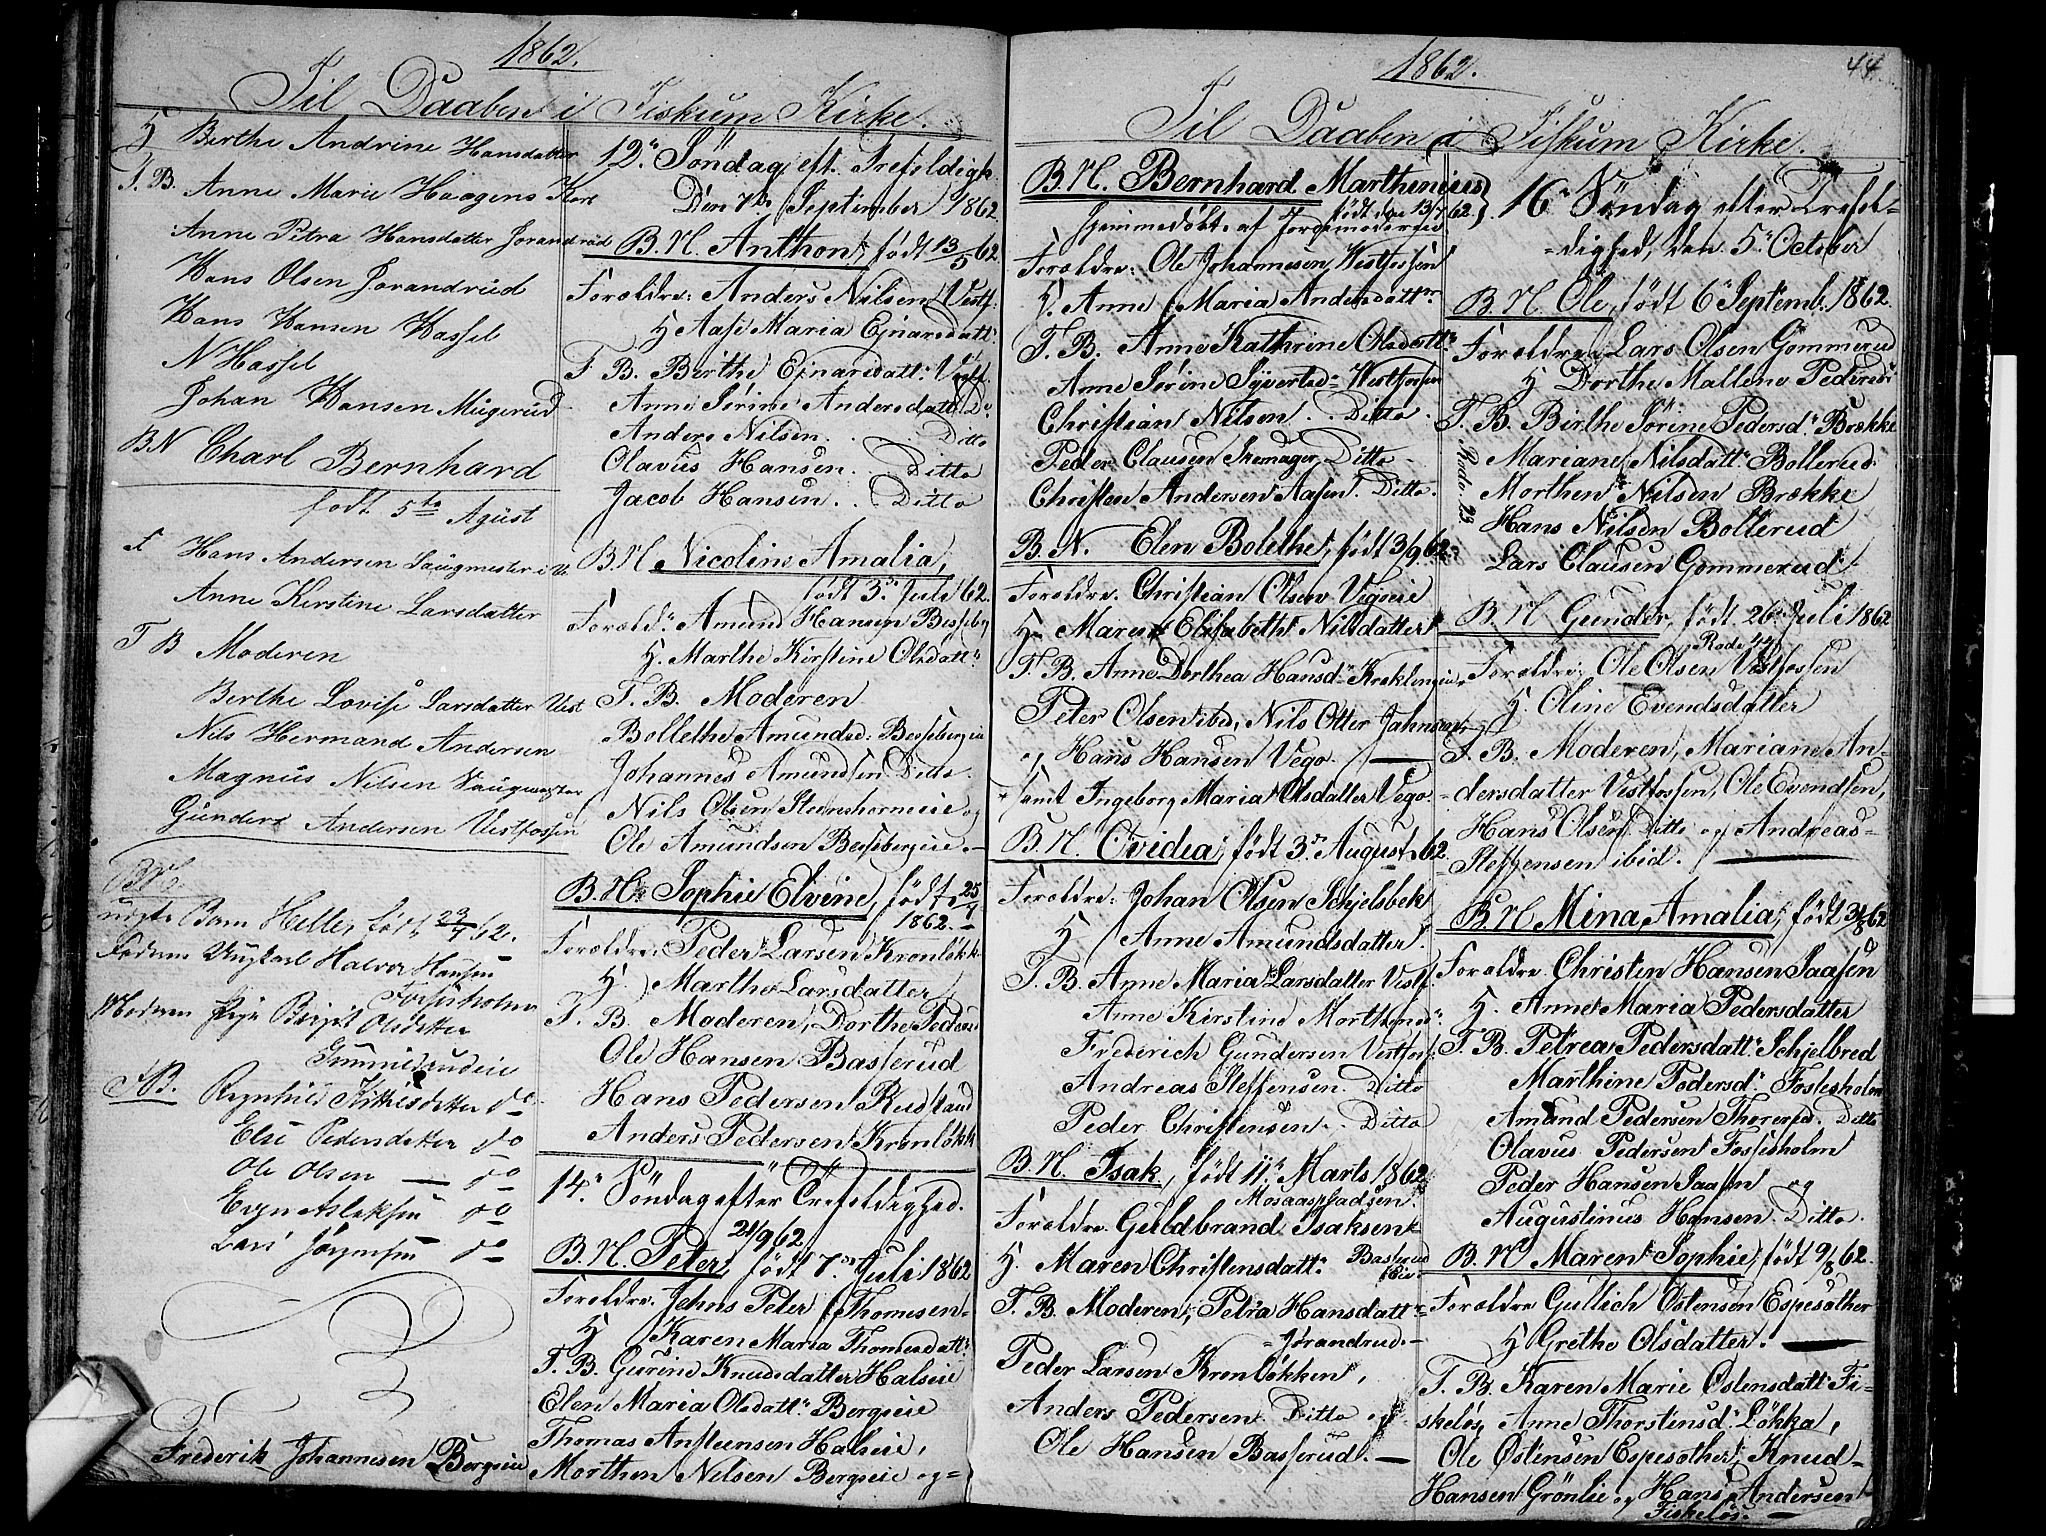 1862.
Til Daaben i Fiskum Kirke.
H Berthe Andrine Hansdatter
F. B. Anne Marie Haagens
Anne Petra Hansdatter Jorandrud
Hans Olsen Jorandrud
Hans Hansen Hassel
N Hassel
Johan Hansen Mugerud
BN Charl Bernhard
født 5te Agust
F Hans Andersen Saugmester i
Anne Kirstine Larsdatter
F B Moderen
Berthe Lovise Larsdatter Vest
Nils Hermand Andersen
Magnus Nilsen Saugmester
Gunders Andersen Vestfossen
uægte Barn Helle, født 23/7 62.
Faderen Ungkarl Halvor Hansen
Fossesholm
Moderen Pige Birgit Olsdatter
FB. Ragnhild do
Else Pedersdatter do
Ole Olsen — do
do
Lars Jørgensen do
12te Søndag eft. Trefoldigh.
Den 7de September 1862
B.N. Anthon, født 13/5 62
Forældre: Anders Nilsen Vestf.
H Aase Maria Ejnarsdatt.
F B. Birthe Ejnarsdatt. Vestf.
Anne Sørine Andersdatt. Do.
Anders Nilsen . . Ditto
Olavus Hansen . . Ditto
Jacob Hansen . . Ditto
B N Nicoline Amalia,
født 3. Juli 62.
Foræld. Amund Hansen Besseberg
H. Marthe Kirstine Olsdatt.
F. B. Moderen
Bollethe Amundsd. Bessebergeie
Johannes Amundsen Ditto.
Nils Olsen Steenshorneie og
Ole Amundsen Bessebergeie. —
B. N. Sophie Elvine, født 25/7
1862. —
Forældre: Peder Larsen Kronløkk.
H. Marthe Larsdatter
F. B. Moderen, Dorthe Peders
Ole Hansen Basserud
Hans Pedersen Rustand
Anders Pedersen Kronløkk
14. Søndag efter Trefoldighed.
21/9 62
B. N. Peter, født 7. Juli 1862
Forældre. Jehns Peter Thomesen
H Karen Maria Thomesdatt.
F. B. Gurine Knudsdatter Halseie
Elen Maria Olsdatt. Bergseie
Thomas Anstensen Halseie,
Morthen Nilsen Bergseie og
Frederik Johannesen Bergseie
1862.
44.
Til Daaben i Fiskum Kirke.
B. N. Bernhard Marthinius
født den 13/7 62.
Hjemmedøbt af Jordemoderen
Forældre: Ole Johannesen Vestfossen
H. Anne Maria Andersdattr.
F. B. Anne Kathrine Olsdatt.
Anne Sørine Syvertsd. Vestfossen
Christian Nilsen . . Ditto.
Peder Clausen Skomager Ditto
Christen Andersen Aasen. Ditto.
B. N. Elen Bolethe, født 3/9 62.
Forældre. Christian Olsen Vegoeie
H. Maren Elisabeth Nilsdatter
F. B. Anne Dorthea Hansd. Kreklingeie,
Peter Olsen ibd, Nils Otter Jahnsen
og Hans Hansen Vego. —
samt Ingeborg Maria Olsdatter Vego.
B. N. Ovidia, født 3. August 62.
Forældre: Johan Olsen Schjelsbek
H Anne Amundsdatter.
F. B. Anne Maria Larsdatter Vestf.
Anne Kirstine Morthens
Frederich Gundersen Vestfos.
Andreas Steffensen Ditto
Peder Christensen . . Ditto
B. N. Isak, født 11. Marts 1862
Forældre. Guldbrand Isaksen
H. Maren Christensdatt. Basserud
Eie.
F. B. Moderen, Petra Hansdatt.
Jørandrud. —
Peder Larsen Kronløkken,
Anders Pedersen Ditto og
Ole Hansen Basserud. —
16. Søndag efter Trefol-
dighed, den 5. October
B. N. Ole, født 6. Septemb. 1862.
Forældre: Lars Olsen Gommerud
H Dorthe Mallene Pedersd.
F. B. Birthe Sørine Pedersd. Brække
Mariane Nilsdatt. Bollerud.
Rode. 23.
Morthen Nilsen Brække
Hans Nilsen Bollerud
Lars Clausen Gommerud.
B. N. Gunder, født 26. Juli 1862
Forældre: Ole Olsen Vestfossen
H. Oline Evendsdatter
F. B. Moderen, Mariane An-
dersdatter Vestfossen, Ole Evendsen,
Hans Olsen Ditto og Andreas
Steffensen ibid. —
B. N Mina Amalia, født 3/8 62
Forældre. Christen Hansen Saasen
H. Anne Maria Pedersdatter
F. B. Petrea Pedersdatt. Schjelbred
Marthine Pedersd. Fossesholm
Amund Pedersen Thorersd. Ditto
Olavus Pedersen Fossesholm
Peder Hansen Saasen og
Augustinus Hansen Ditto.
B. N Maren Sophie, født 9/8 62.
Forældre Gullich Østensen Espesæther
H Grethe Olsdatter. —
F. B. Karen Marie Østensdatt. Fi-
skeløs, Anne Thorstensd. Løkka,
Ole Østensen Espesæther, Knud
Hansen Grønlie og Hans Andersen
Fiskeløs. —